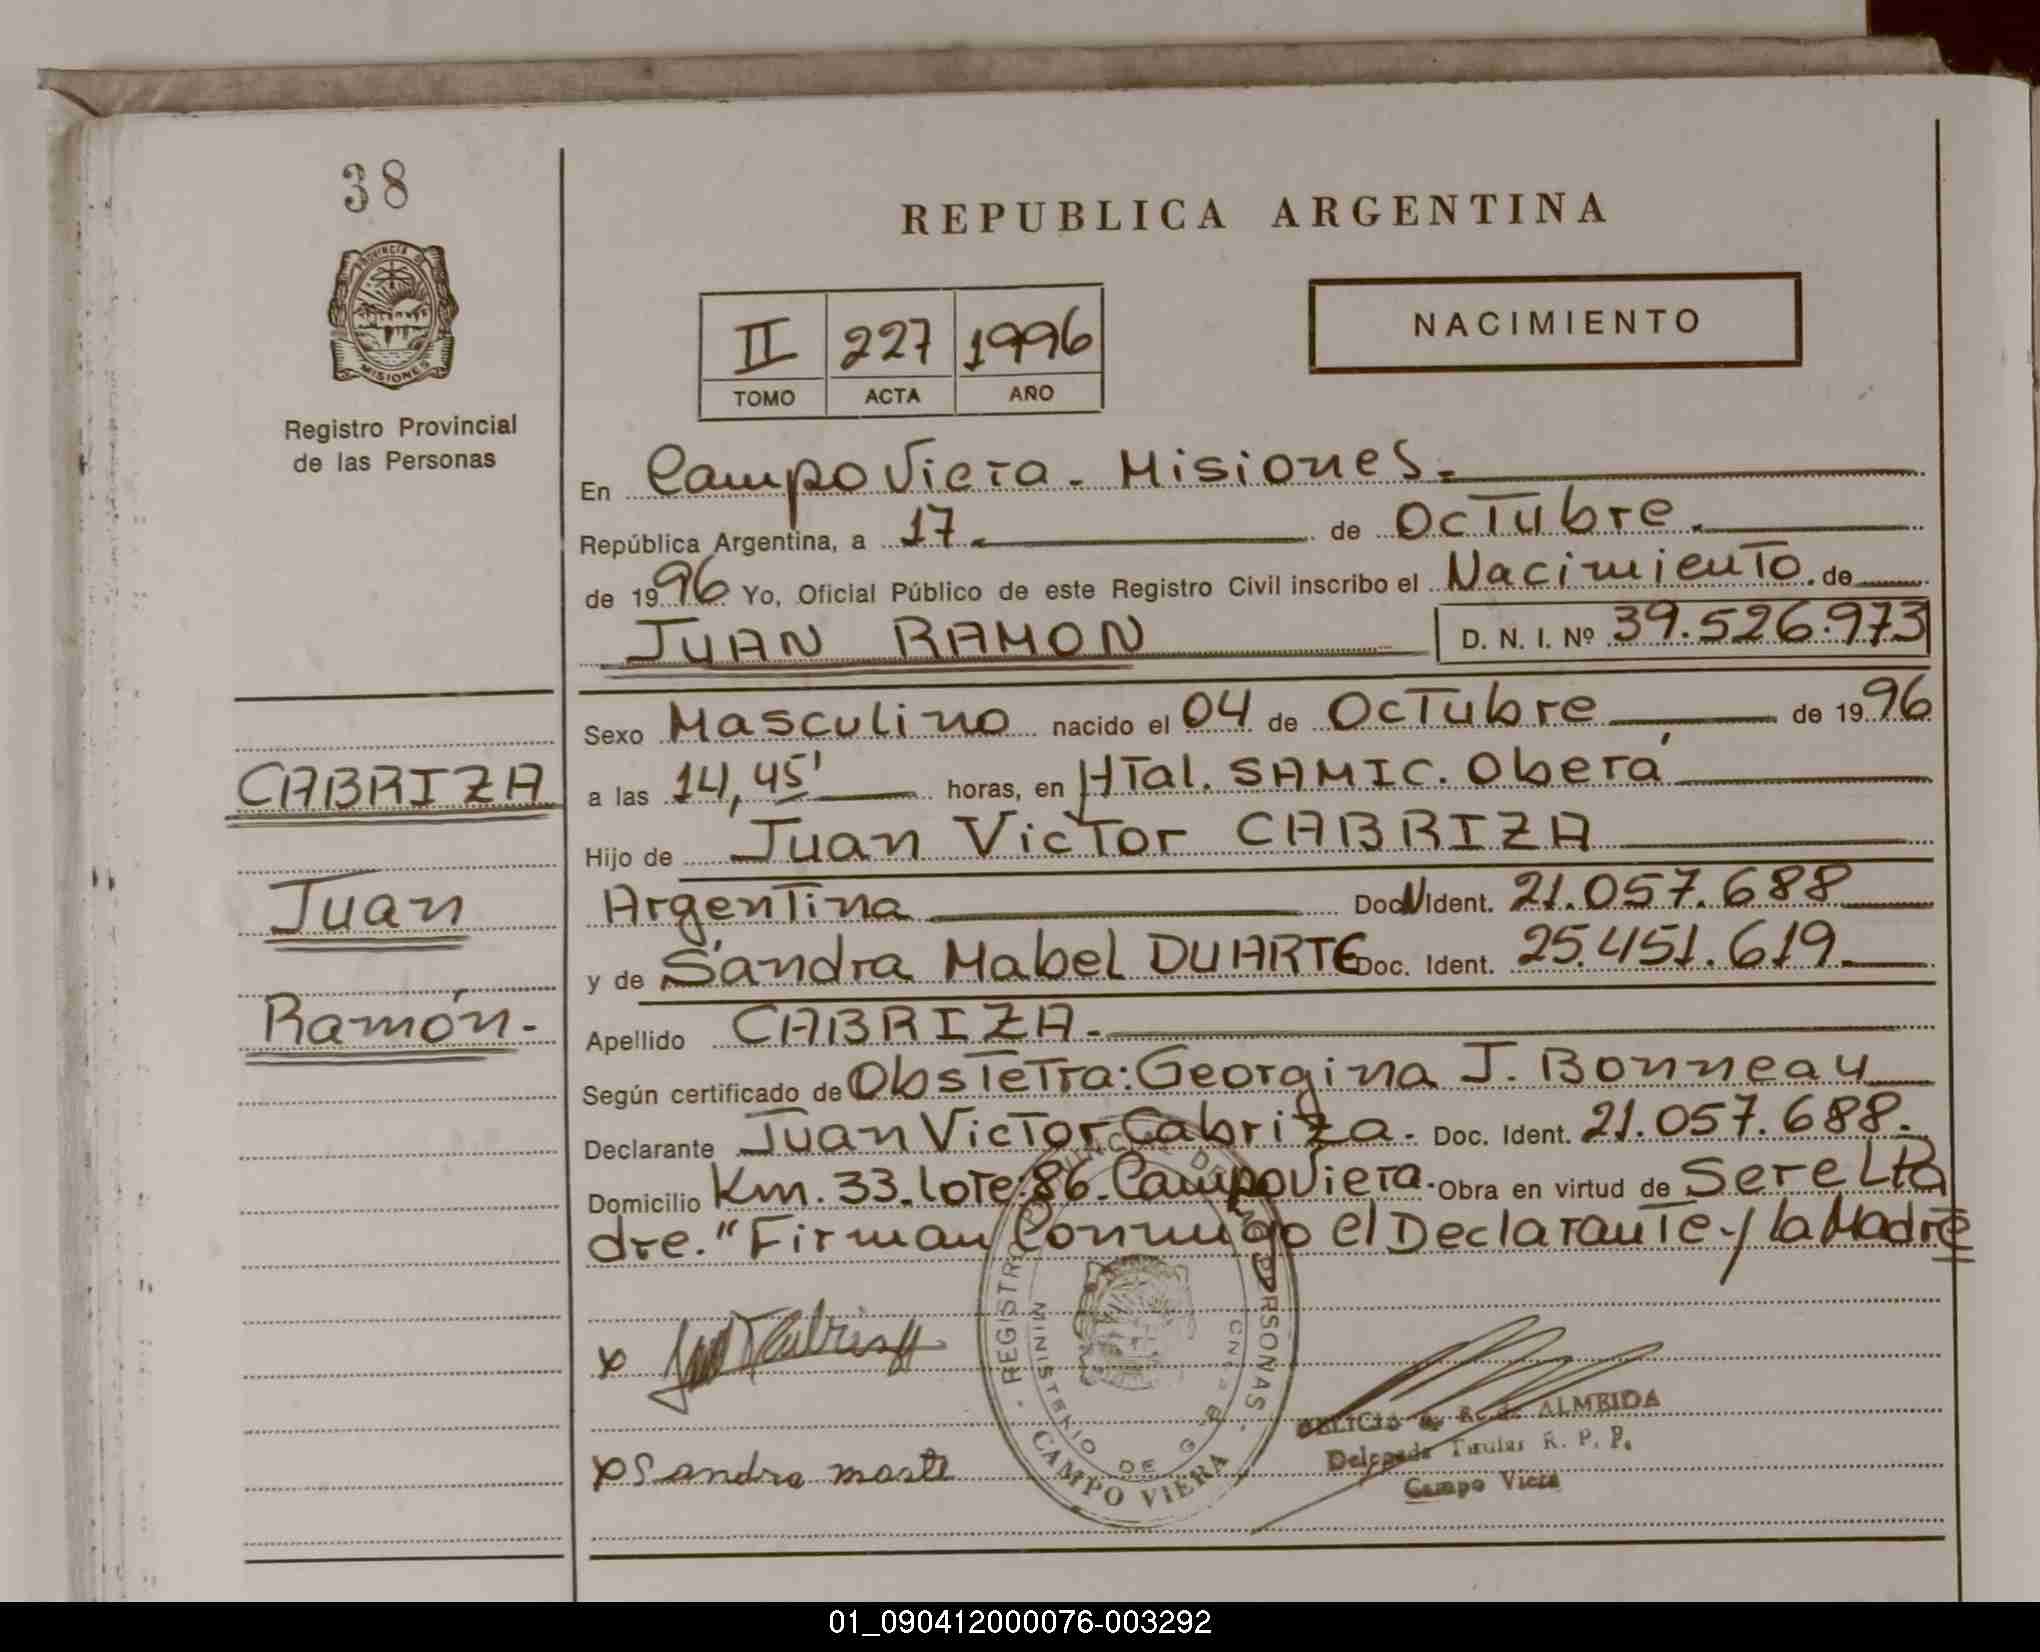 38
PROVINCIA DE
MISIONES
Registro Provincial
de las Personas
REPUBLICA ARGENTINA
II 227 1996
TOMO ACTA AÑO
NACIMIENTO
En Campo Viera - Misiones.
República Argentina, a 17 de Octubre.
de 1996 Yo, Oficial Público de este Registro Civil inscribo el Nacimiento de
JUAN RAMON D. N. I. Nº 39.526.973
Sexo Masculino nacido el 04 de Octubre de 1996
CABRIZA
a las 14,45' horas, en HTal. SAMIC. Oberá
Hijo de Juan Victor CABRIZA
Juan
Argentina Doc N Ident. 21.057.688
y de Sandra Mabel DUARTE Doc. Ident. 25.451.619.
Ramón.-
Apellido CABRIZA.-
Según certificado de Obstetra: Georgina J. Bonneau
Declarante Juan Victor Cabriza. Doc. Ident. 21.057.688.
Domicilio Km. 33. Lote: 86. Campo Viera. Obra en virtud de Ser el Pa
dre." Firman Conmigo el Declarante y la Madre
REGISTRO PERSONAS
MINISTERIO DE G
CAMPO VIERA
x
x Sandra
ALMEIDA
Delegada Titular R. P. P.
Campo Viera
01_090412000076-003292